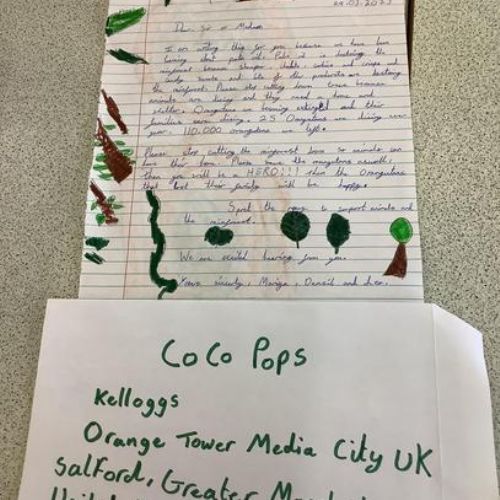 09.03.2023
Dear Sir or Madam
I am writing this for you because we have been
learning about palm oil. Palm oil is destroying the
rainforest because shampoo, chocolate, cookies and crisps and
and lots of other products are destroying
the rainforest. Please stop cutting down trees because
animals are dying and they need a home and
shelter. Orangutans are becoming extinct and their
families were dying. 25 Orangutans are dying every
year. 110,000 orangutans are left.
Please stop cutting the rainforest down so animals can
have their home. Please save the orangutans as well,
then you will be a HERO!!! then the Orangutans
that lost their family will be happy.
Spend the money to support animals and
the rainforest.
We are excited hearing from you.
Yours sincerely, Mariya, Denzil and
CoCo Pops
Kelloggs
Orange Tower Media City UK
Salford, Greater